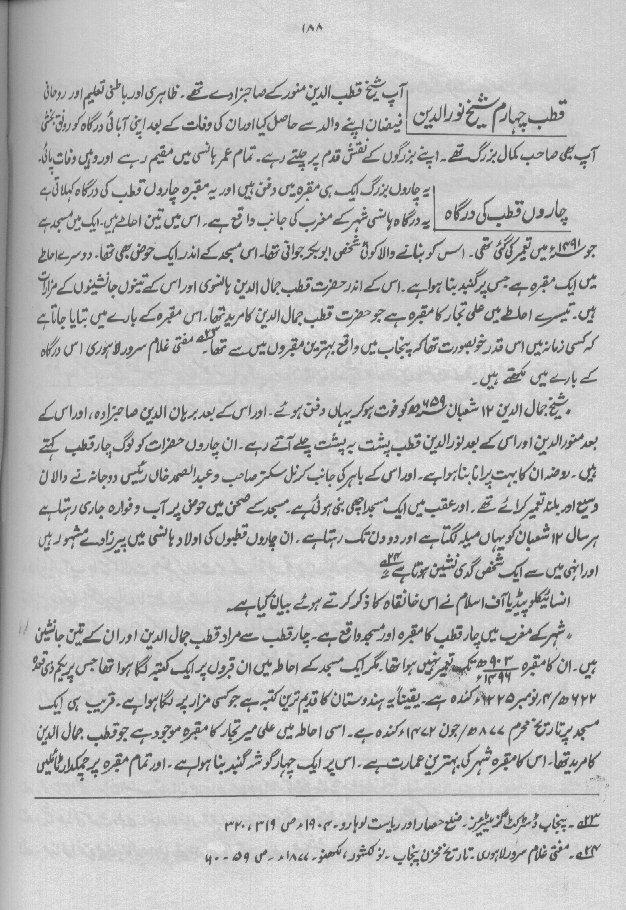 ۱۸۸
قطب چہارم شیخ نورالدین
آپ شیخ قطب الدین منور کے صاحبزادے تھے۔ ظاہری اور باطنی تعلیم اور روحانی
فیضان اپنے والد سے حاصل کیا اور ان کی وفات کے بعد اپنی آبائی درگاہ کو رونق بخشی
آپ بھی صاحب کمال بزرگ تھے۔ اپنے بزرگوں کے نقش قدم پر چلتے رہے۔ تمام عمر ہانسی میں مقیم رہے اور وہیں وفات پائی۔
چاروں قطب کی درگاہ
یہ چاروں بزرگ ایک ہی مقبرہ میں دفن ہیں اور یہ مقبرہ چاروں قطب کی درگاہ کہلاتی ہے
یہ درگاہ ہانسی شہر کے مغرب کی جانب واقع ہے۔ اس میں تین احاطے ہیں۔ ایک میں مسجد ہے
جو ۱۴۹۱ء میں تعمیر کی گئی تھی۔ اسس کو بنانے والا کوئی شخص ابوبکر جوانی تھا۔ اس مسجد کے اندر ایک حوض بھی تھا۔ دوسرے احاطے
میں ایک مقبرہ ہے جس پر گنبد بنا ہوا ہے۔ اس کے اندر حضرت قطب جمال الدین ہانسوی اور اس کے تینوں جانشینوں کے مزارات
ہیں۔ تیسرے احاطے میں علی تجار کا مقبرہ ہے جو حضرت قطب جمال الدین کا مرید تھا۔ اس مقبرہ کے بارے میں بتایا جاتا ہے
کہ کسی زمانہ میں اس قدر خوبصورت تھا کہ پنجاب میں واقع بہترین مقبروں میں سے تھا۔ ۲۳؎ مفتی غلام سرور لاہوری اس درگاہ
کے بارے میں لکھتے ہیں۔
"شیخ جمال الدین ۱۲ شعبان ۶۵۹ھ کو فوت ہو کر یہاں دفن ہوئے۔ اور اس کے بعد برہان الدین صاحبزادہ، اور اس کے
بعد منور الدین اور اس کے بعد نورالدین قطب پشت بہ پشت چلے آتے رہے۔ ان چاروں حضرات کو لوگ چار قطب کہتے
ہیں۔ روضہ ان کا بہت پرانا بنا ہوا ہے۔ اور اسی کے باہر کی جانب کرنل سکنر صاحب و عبدالصمد خاں رئیس دوجانہ نے دالان
وسیع اور بلند تعمیر کرائے تھے۔ اور عقب میں ایک مسجد اچھی بنی ہوئی ہے۔ مسجد کے صحن میں حوض پر آب و فوارہ جاری رہتا ہے
ہر سال ۱۲ شعبان کو یہاں میلہ لگتا ہے اور دو دن تک رہتا ہے۔ ان چاروں قطبوں کی اولاد ہانسی میں پیرزادے مشہور ہیں
اور انہی میں سے ایک شخص گدی نشین ہوتا ہے۔ ۲۴؎
انسائیکلوپیڈیا آف اسلام نے اس خانقاہ کا ذکر کرتے ہوئے بیان کیا ہے۔
"شہر کے مغرب میں چار قطب کا مقبرہ اور مسجد واقع ہے۔ چار قطب سے مراد قطب جمال الدین اور ان کے تین جانشین
ہیں۔ ان کا مقبرہ ۹۰۳ھ ۱۴۹۶ء تک تعمیر نہیں ہوا تھا۔ مگر ایک مسجد کے احاطہ میں ان قبروں پر ایک کتبہ لگا ہوا تھا جس پر یکم ذی قعدہ
۶۲۲ھ/۴ نومبر ۶۲۲۵ء کندہ ہے۔ یقیناً یہ ہندوستان کا قدیم ترین کتبہ ہے جو کسی مزار پر لگا ہوا ہے۔ قریب ہی ایک
مسجد پر تاریخ محرم ۸۷۷ھ/جون ۱۴۷۲ء کندہ ہے۔ اسی احاطہ میں علی میر تجار کا مقبرہ موجود ہے جو قطب جمال الدین
کا مرید تھا۔ اس کا مقبرہ شہر کی بہترین عمارت ہے۔ اس پر ایک چہار گوشہ گنبد بنا ہوا ہے۔ اور تمام مقبرہ پر چمکدار ٹائلیں
۲۳؎۔ پنجاب ڈسٹرکٹ گزیٹیرز۔ ضلع حصار اور ریاست لوہارو۔ ۱۹۰۴ء ص ۳۱۹، ۳۲۰
۲۴؎۔ مفتی غلام سرور لاہوری۔ تاریخ مخزن پنجاب۔ نولکشور، لکھنو۔ ۱۸۷۷ء۔ ص ۵۹۔۶۰